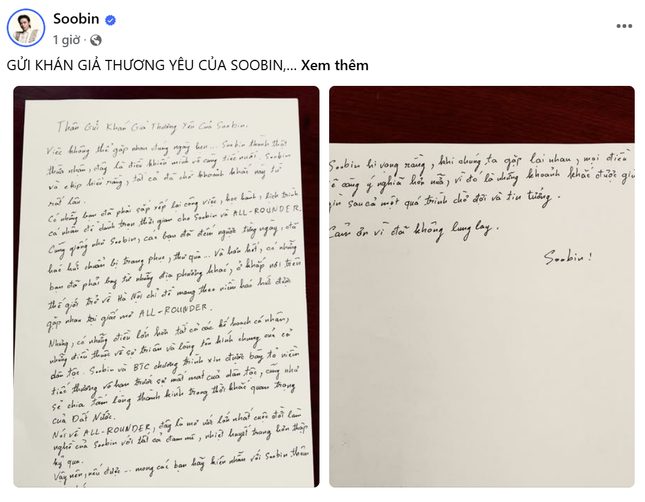 Soobin
1 giờ ·
GỬI KHÁN GIẢ THƯƠNG YÊU CỦA SOOBIN,... Xem thêm
Thân Gửi Khán Giả Thương Yêu Của Soobin.
Việc không thể gặp nhau đúng ngày hẹn... Soobin thành thật
thừa nhận, đây là điều khiến mình vô cùng tiếc nuối. Soobin
và ekip hiểu rằng, tất cả đã chờ khoảnh khắc này từ
rất lâu.
Có những bạn đã phải sắp xếp lại công việc, học hành, lịch trình
cá nhân để dành trọn thời gian cho Soobin và ALL-ROUNDER.
Cũng giống như Soobin, các bạn đã đếm ngược từng ngày, đã
háo hức chuẩn bị trang phục, thư quà... Và hơn hết, có những
bạn đã phải bay từ những địa phương khác, ở khắp nơi trên
thế giới trở về Hà Nội chỉ để mang theo niềm háo hức được
gặp nhau tại giấc mơ ALL-ROUNDER.
Nhưng, có những điều lớn hơn tất cả các kế hoạch cá nhân,
những điều thuộc về sự tri ân và lòng tôn kính chung của cả
dân tộc. Soobin và BTC chương trình xin được bày tỏ niềm
tiếc thương vô hạn trước sự mất mát của dân tộc, cũng như
sẻ chia tấm lòng thành kính trong thời khắc quan trọng
của Đất Nước.
Nói về ALL-ROUNDER, đây là mơ ước lớn nhất cuộc đời làm
nghề của Soobin với tất cả đam mê, nhiệt huyết trong hơn thập
kỷ qua.
Vậy nên, nếu được... mong các bạn hãy kiên nhẫn với Soobin thêm
Soobin hi vọng rằng, khi chúng ta gặp lại nhau, mọi điều
sẽ càng ý nghĩa hơn nữa, vì đó là những khoảnh khắc được giữ
gìn sau cả một quá trình chờ đợi và tin tưởng.
Cảm ơn vì đã không lung lay.
Soobin!